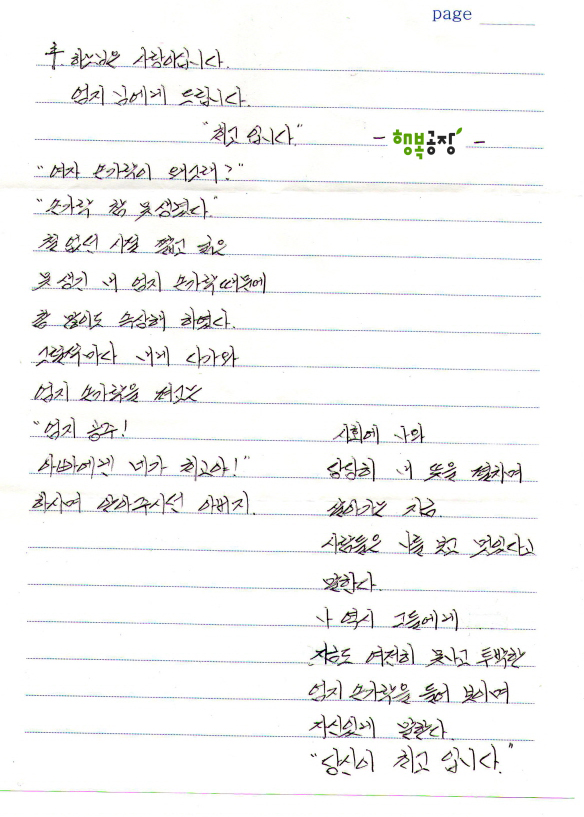 page
후. 하느님은 사랑이십니다.
엄지 님에게 드립니다.
"최고 입니다."
- 행복공장 -
"여자 손가락이 왜그래?"
"손가락 참 못 생겼다."
철 없던 시절 짧고 굵은
못 생긴 내 엄지 손가락 때문에
참 많이도 속상해 하였다.
그럴때마다 내게 다가와
엄지 손가락을 펴고는
"엄지 공주!
아빠에겐 네가 최고야!"
하시며 안아주시던 아버지.
사회에 나와
당당히 내 뜻을 펼치며
살아가는 지금.
사람들은 나를 보고 멋있다고
말한다.
나 역시 그들에게
지금도 여전히 못나고 투박한
엄지 손가락을 들어 보이며
자신있게 말한다.
"당신이 최고 입니다."